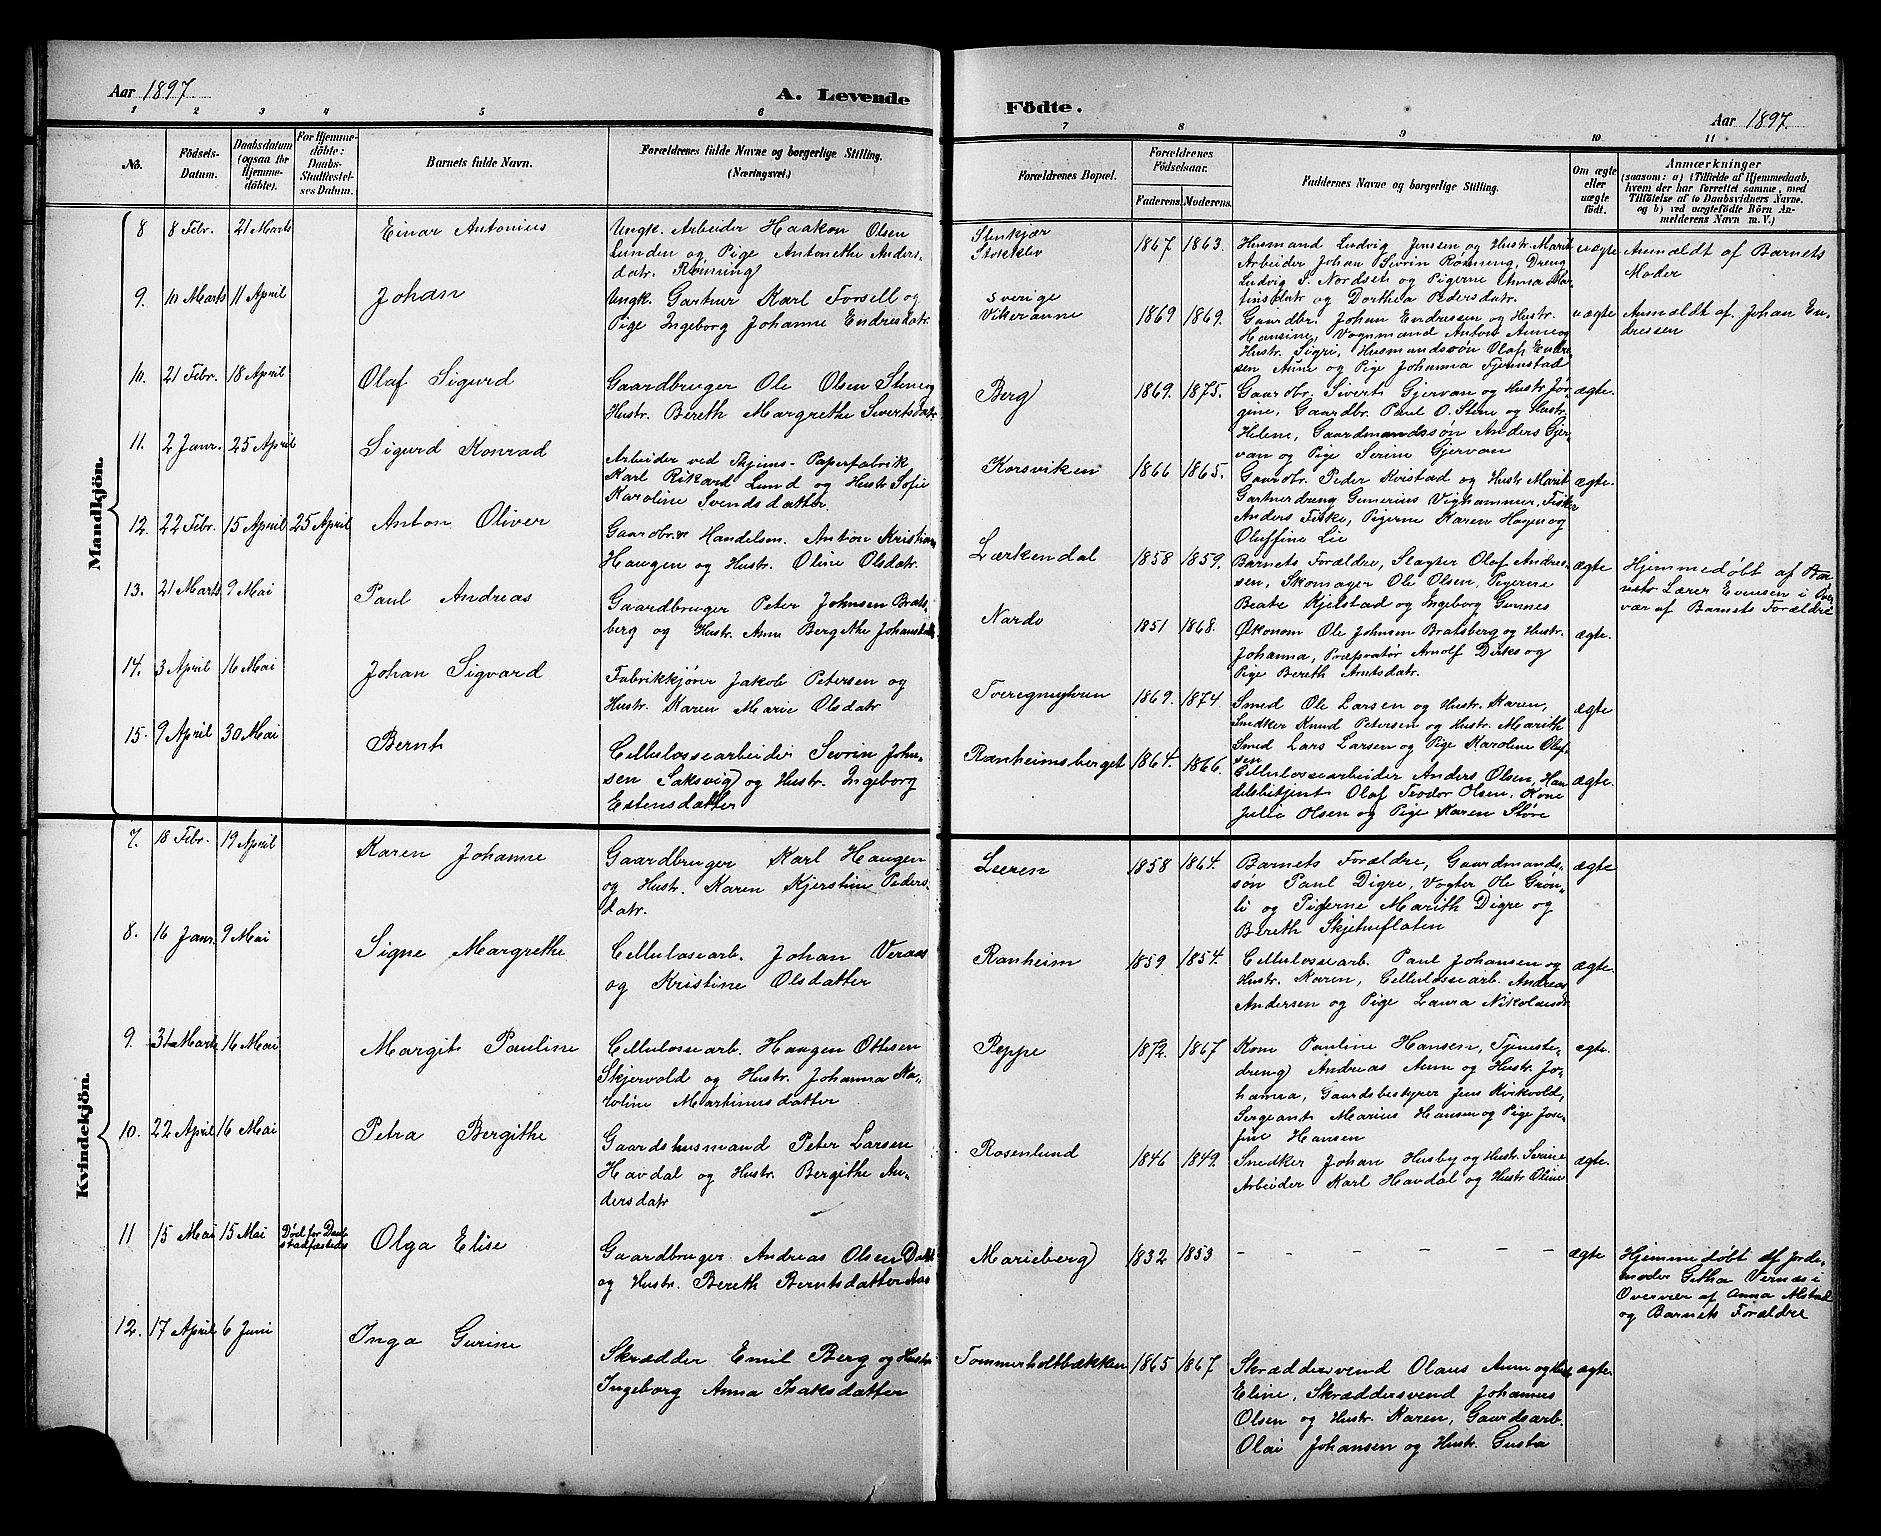 Aar 1897
A. Levende
Födte.
Aar 1897.
1 2 3 4 5 6 7 8 9 10 11
No.
Födsels-Datum.
Daabsdatum (ogsaa for Hjemmedöbte).
For Hjemmedöbte: Daabs-Stadfæstelses Datum.
Barnets fulde Navn.
Forældrenes fulde Navne og borgerlige Stilling. (Næringsvei.)
Forældrenes Bopæl.
Forældrenes Födselsaar.
Faderens. Moderens.
Faddernes Navne og borgerlige Stilling.
Om ægte eller uægte födt.
Anmærkninger
(saasom: a) i Tilfælde af Hjemmedaab, hvem der har forrettet samme, med Tilföielse af to Daabsvidners Navne. og b) ved uægtefödte Börn Anmelderens Navn m. V.)
Mandkjön.
8 8 Febr. 21 Marts Einar Antonius
Ungk. Arbeider Haakon Olsen
Lunden og Pige Antonethe Anders-
datr. Rønning
Stenkjær
Stokklev
1867 1863.
Husmand Ludvig Jensen og Hustr. Marit
Arbeider Johan Sevrin Rønning, Dreng
Ludvig J. Nordset og Pigerne Anna Mar-
tinsdatr og Dorthea Pedersdatr.
uægte
Anmældt af Barnets
Moder
9. 10 Marts 11 April Johan
Ungk. Gartner Karl Forsell og
Pige Ingeborg Johanne Endresdatr.
Sverige
Vikeraune
1869 1869.
Gaardbr. Johan Endressen og Hustr.
Hansine, Vognmand Anton Aune og
Hustr. Sigri, Husmandssøn Olaf Endre-
sen Aune og Pige Johanna Fjemstad
uægte
Anmældt af Johan En-
dressen
10. 21 Febr. 18 April Olaf Sigurd
Gaardbruger Ole Olsen Stene og
Hustr. Bereth Margrethe Sivertsdatr.
Berg
1869. 1875.
Gaardbr. Sivert Gjervan og Hustr Jør-
gine, Gaardbr. Paul O. Stene og Hustr.
Helene, Gaardmandssøn Anders Gjer-
van og Pige Serine Gjervan
ægte.
11. 2 Janr. 25 April Sigurd Konrad
Arbeider ved Thjems-Papirfabrik
Karl Rikard Lund og Hustr Sofie
Karoline Svendsdatter.
Korsviken
1866 1865.
Gaardbr. Peder Kvistad og Hustr Marit
Gartnerdreng Gunerius Vighammer, Fisker
Anders Fiske, Pigerne Karen Hagen og
Oluffine Lie
ægte.
12. 22 Febr. 15 April 25 April Anton Oliver
Gaardbr. & Handelsm. Anton Kristian
Haugen og Hustr. Oline Olsdatr.
Lærkendal
1858 1859.
Barnets Forældre, Slagter Olaf Andres-
sen, Skomager Ole Olsen, Pigerne
Beate Kjelstad og Ingeborg Gunnes
ægte
Hjemmedøbt af Bar-
nets Lærer Evensen i Over-
vær af Barnets Forældre
13. 21 Marts 9 Mai Paul Andreas
Gaardbruger Peter Johnsen Brats-
berg og Hustr. Anne Bergithe
Nardo
1851 1868.
Økonom Ole Johnsen Bratsberg og Hustr.
Johanna, Præparatør Arnolf Dirks og
Pige Bereth Arntsdatr.
ægte.
14. 3 April 16 Mai Johan Sigvard
Fabrikkjører Jakob Petersen og
Hustr. Karen Marie Olsdatr
1869. 1874.
Smed Ole Larsen og Hustr. Karen,
Snedker Knud Petersen og Hustr. Marith
Smed Lars Larsen og Pige Karoline Olaf-
sen
ægte
15. 9 April 30 Mai Bernt
Cellulossearbeider Sevrin John-
sen Saksvig og Hustr. Ingeborg
Estensdatter
Ranheimsberget
1864. 1866.
Cellulossearbeider Anders Olsen, Han-
delsbetjent Olaf Teodor Olsen, Kone
Julie Olsen og Pige Karen Støre
ægte.
Kvindekjön.
7. 18 Febr. 19 April Karen Johanne
Gaardbruger Karl Haugen
og Hustr. Karen Kjerstine Peders-
datr.
Leeren
1858 1864.
Barnets Forældre, Gaardmands-
søn Paul Digre, Vogter Ole Grøn-
li og Pigerne Marith Digre og
Bereth Skjetneflaten
ægte
8. 16 Janr. 9 Mai Signe Margrethe
Cellulossearb. Johan Veraas
og Kristine Olsdatter
Ranheim
1859 1854.
Cellulossearb. Paul Johansen og
Hustr. Karen, Cellulossearb. Andreas
Andersen og Pige Laura
ægte.
9. 31 Marts 16 Mai Margit Pauline
Cellulossearb. Haagen Ottesen
Skjervold og Hustr. Johanna Ka-
roline Martinusdatter
Peppe
1872. 1867
Kone Pauline Hansen, Tjeneste-
dreng Andreas Aune og Hustr. Jo-
hanna, Gaardsbestyrer Jens Kirkvold,
Sergeant Marius Hansen og Pige Jose-
fine Hansen
ægte.
10. 22 April 16 Mai Petra Bergithe
Gaardshusmand Peter Larsen
Havdal og Hustr. Bergithe An-
dersdatr
Rosenlund
1846 1849.
Snedker Johan Husby og Hustr. Serine
Arbeider Karl Havdal og Hustr Oline
ægte.
11 15 Mai 15 Mai Død før Daabs
stadfæstedes Olga Elise
Gaardbruger Andreas Olsen
og Hustr. Bereth Berntsdatter Aas
Marieberg
1832 1853
– – – – – –
ægte
Hjemmedøbt af Jorde-
moder Getha Vernæs i
Overvær af Anna Alstad
og Barnets Forældre
12. 17 April 6 Juni Inga Gurine
Skrædder Emil Berg og Hustr.
Ingeborg Anna Isaksdatter
Tommerholtbækken
1865 1867.
Skræddersvend Olaus Aune og Hust
Eline, Skræddersvend Johannes
Olsen og Hustr. Karen, Gaardsarb.
Olai Johansen og Hustr. Gusta
ægte.